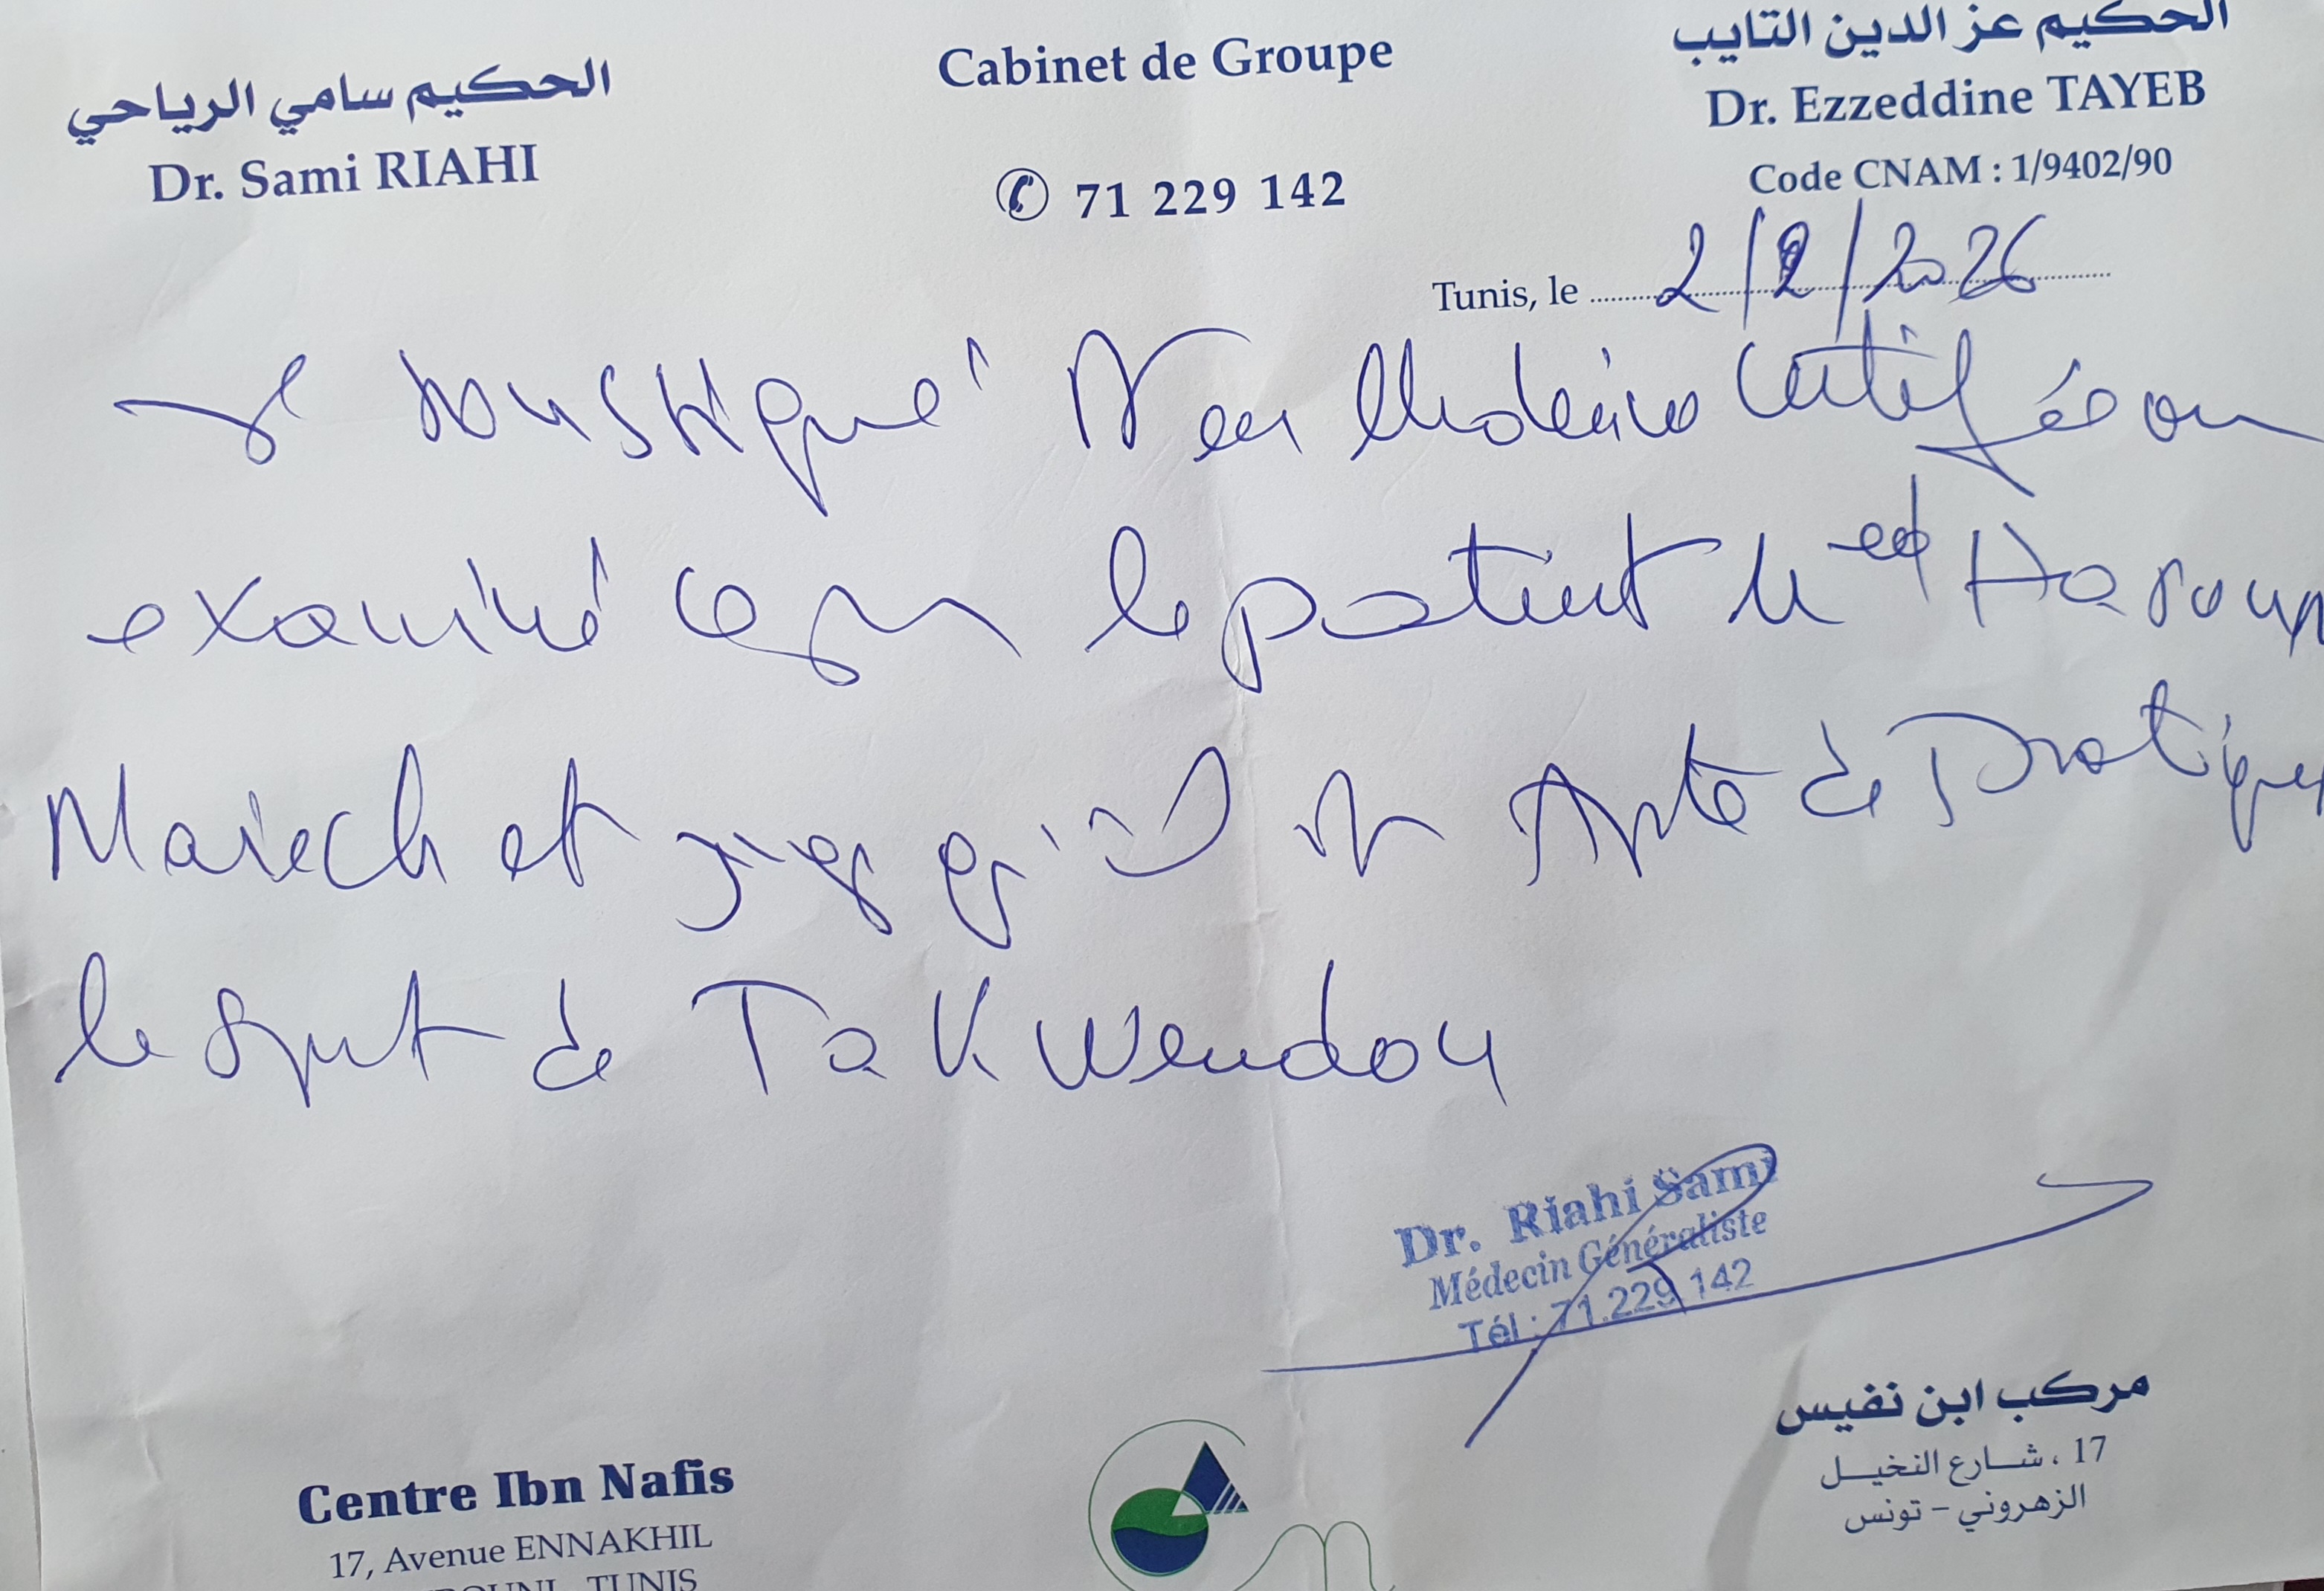 الحكيم سامي الرياحي
Dr. Sami RIAHI
Cabinet de Groupe
✆ 71 229 142
الحكيم عز الدين التايب
Dr. Ezzeddine TAYEB
Code CNAM : 1/9402/90
Tunis, le 2/2/2026
Je soussigné en certifie
examiné ce jour le patient Med Haroun
Marech et juge qu'il est Apte de Pratiquer
le sport de Takwendou
Dr. Riahi Sami
Médecin Généraliste
Tél : 71.229 142
Centre Ibn Nafis
17, Avenue ENNAKHIL
TUNIS
مركب ابن نفيس
17 ، شارع النخيل
الزهروني - تونس